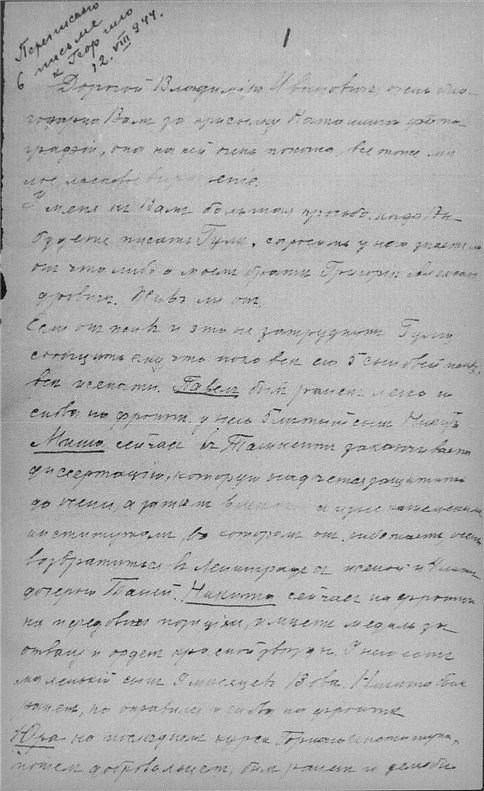 Переписано
в письме
к Георгию
12. VIII 944.
1
Дорогой Владимір Иванович, очень бла-
годарна Вам за присылку Наташиной фото-
графіи, она на ней очень похожа, все тоже ми-
лое, ласковое выражение.
У меня к Вам большая просьба. когда Вы
будете писать Гулі, спросить у нея знает ли
он что либо о моем брате Григории Александ-
ровиче. Жив ли он.
Если он жив и это не затруднит Гулю
сообщить ему что пока все его 5 сыновей живы,
все женаты. Павел был ранен легко и
снова на фронте, у него 5 летний сын
Маша сейчас в Ташкенте заканчивает
диссертацию, которую надеется защитить
до осени, а затем вместе с
институтом, в котором он работает
возвратиться в Ленинград с женой и
дочерью Таней. Никита сейчас на фронте
на передовых позиціях, имеет медаль за
отвагу и орден красной звезды. У него есть
маленький сын 9 месяцев Вова. Никита был
ранен, но оправился и снова на фронте
Юра на последнем курсе Горнаго института,
пошел добровольцем, был ранен и демоби-